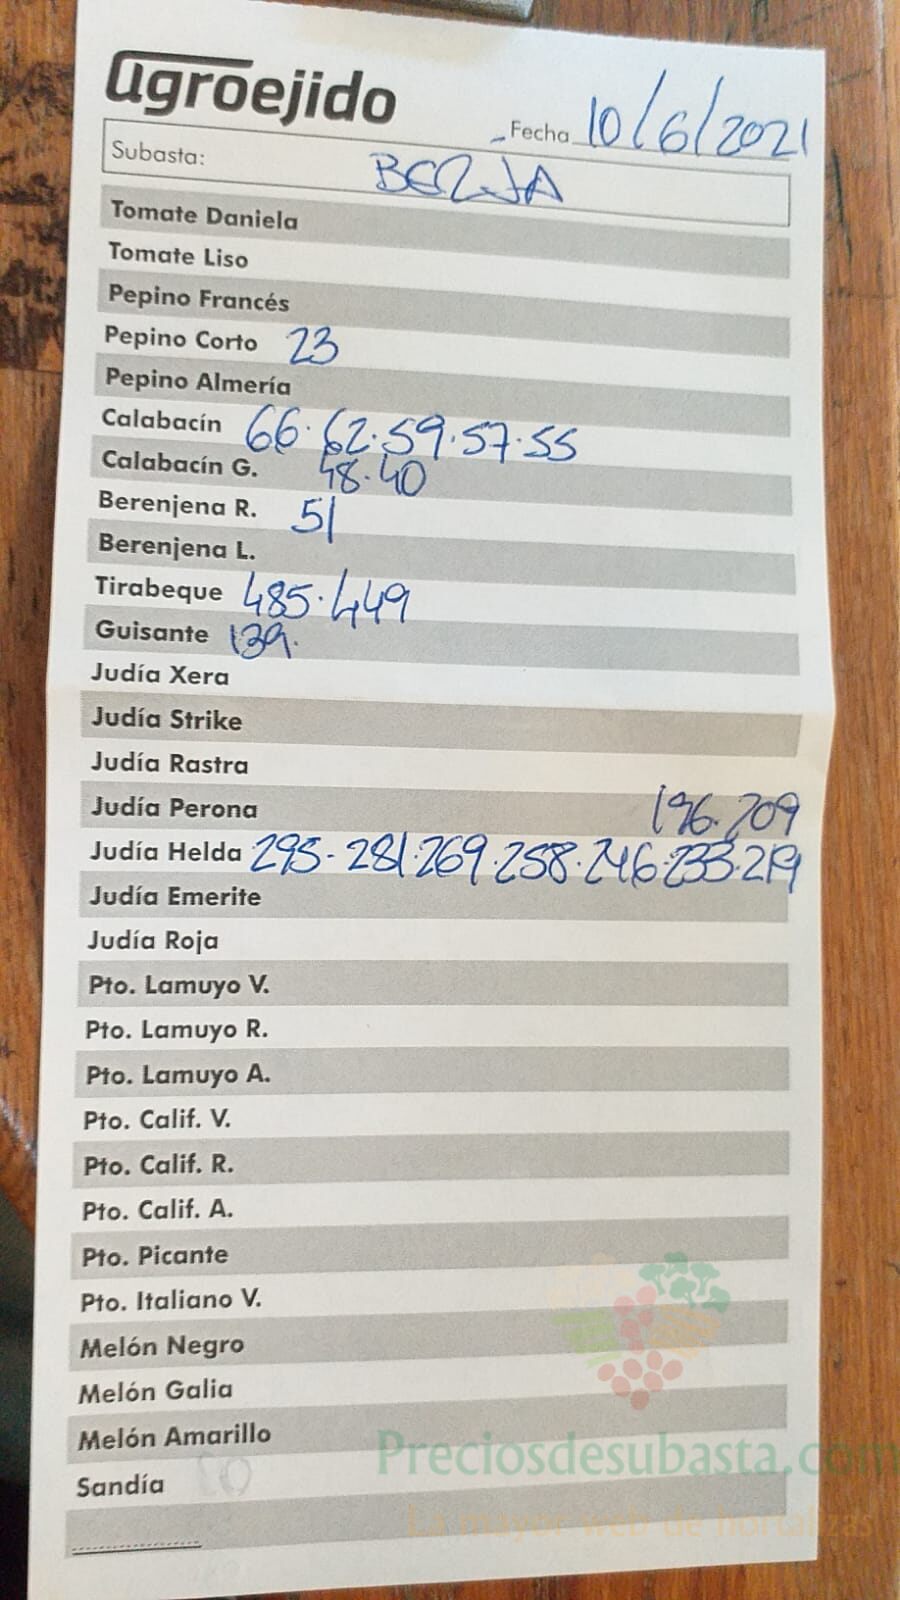 agroejido
Fecha 10/6/2021
Subasta: BERJA
Tomate Daniela
Tomate Liso
Pepino Francés
Pepino Corto 23
Pepino Almería
Calabacín 66. 62. 59. 57. 55
Calabacín G. 48. 40
Berenjena R. 51
Berenjena L.
Tirabeque 485. 449
Guisante 139.
Judía Xera
Judía Strike
Judía Rastra
Judía Perona 196. 209
Judía Helda 295- 281. 269. 258. 246. 233. 219
Judía Emerite
Judía Roja
Pto. Lamuyo V.
Pto. Lamuyo R.
Pto. Lamuyo A.
Pto. Calif. V.
Pto. Calif. R.
Pto. Calif. A.
Pto. Picante
Pto. Italiano V.
Melón Negro
Melón Galia
Melón Amarillo
Preciosdesubasta.com
Sandía
La mayor web de hortalizas